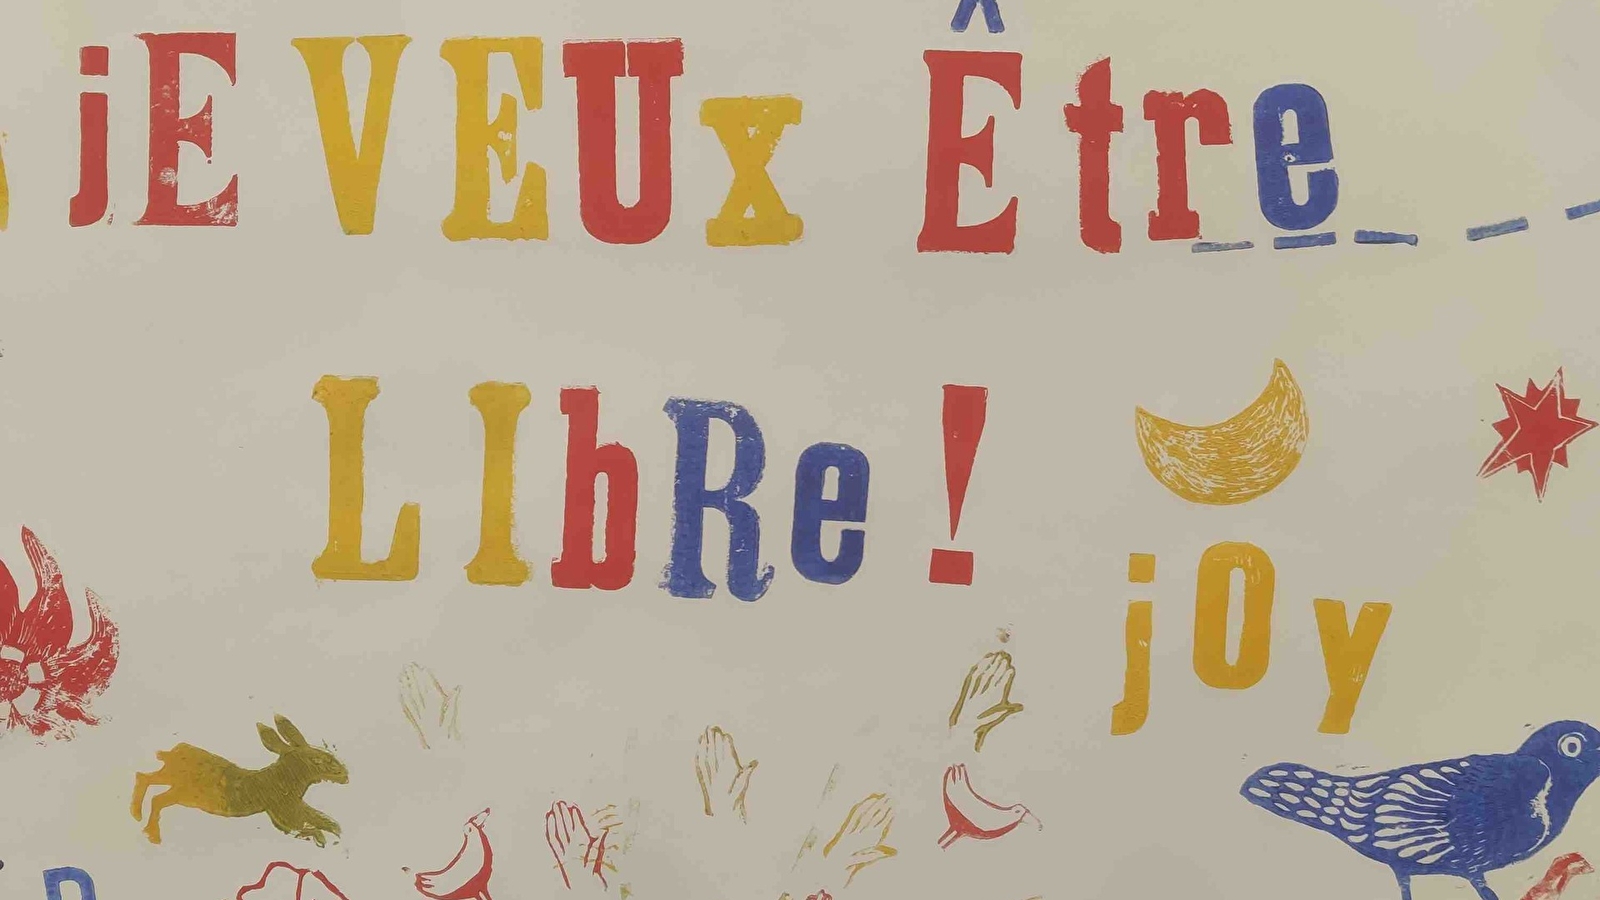 jE VEUx Être
LIbRe !
jOy